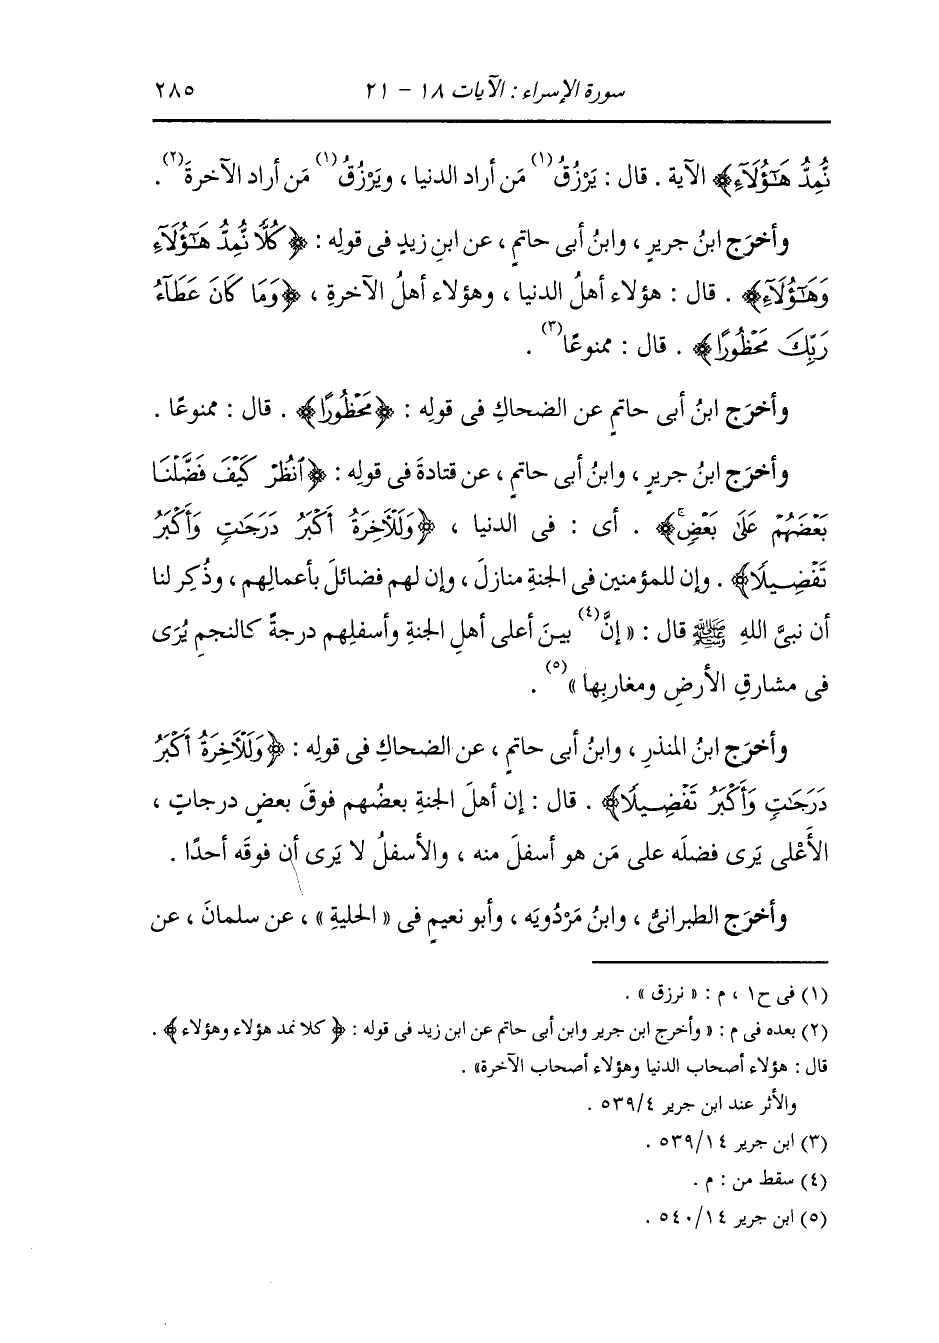 سورة الإسراء : الآيات ١٨ - ٢١ ٢٨٥
نُّمِدُّ هَٰٓؤُلَآءِ﴾ الآية . قال : يَرْزُقُ(١) مَن أراد الدنيا ، ويَرْزُقُ(١) مَن أراد الآخرةَ(٢).
وأخرَج ابنُ جريرٍ ، وابنُ أبى حاتمٍ ، عن ابنِ زيدٍ فى قولِه : ﴿كُلًّا نُّمِدُّ هَٰٓؤُلَآءِ
وَهَٰٓؤُلَآءِ﴾ . قال : هؤلاء أهلُ الدنيا ، وهؤلاء أهلُ الآخرةِ ، ﴿وَمَا كَانَ عَطَآءُ
رَبِّكَ مَحْظُورًا﴾ . قال : ممنوعًا(٣) .
وأخرَج ابنُ أبى حاتمٍ عن الضحاكِ فى قولِه : ﴿مَحْظُورًا﴾ . قال : ممنوعًا .
وأخرَج ابنُ جريرٍ ، وابنُ أبى حاتمٍ ، عن قتادةَ فى قولِه : ﴿ٱنظُرْ كَيْفَ فَضَّلْنَا
بَعْضَهُمْ عَلَىٰ بَعْضٍۚ﴾ . أى : فى الدنيا ، ﴿وَلَلْأَخِرَةُ أَكْبَرُ دَرَجَٰتٍ وَأَكْبَرُ
تَفْضِيلًا﴾ . وإن للمؤمنين فى الجنةِ منازلَ ، وإن لهم فضائلَ بأعمالِهم ، وذُكِر لنا
أن نبىَّ اللهِ ﷺ قال : « إنَّ(٤) بينَ أعلى أهلِ الجنةِ وأسفلِهم درجةً كالنجمِ يُرَى
فى مشارقِ الأرضِ ومغاربِها »(٥) .
وأخرَج ابنُ المنذرِ ، وابنُ أبى حاتمٍ ، عن الضحاكِ فى قولِه : ﴿وَلَلْأَخِرَةُ أَكْبَرُ
دَرَجَٰتٍ وَأَكْبَرُ تَفْضِيلًا﴾ . قال : إن أهلَ الجنةِ بعضُهم فوقَ بعضٍ درجاتٍ ،
الأَعْلى يَرى فضلَه على مَن هو أسفلَ منه ، والأسفلُ لا يَرى أن فوقَه أحدًا .
وأخرَج الطبرانىُّ ، وابنُ مَرْدُويَه ، وأبو نعيمٍ فى « الحليةِ » ، عن سلمانَ ، عن
(١) فى ح١ ، م : « نرزق » .
(٢) بعده فى م : « وأخرج ابن جرير وابن أبى حاتم عن ابن زيد فى قوله : ﴿ كلا نمد هؤلاء وهؤلاء ﴾ .
قال : هؤلاء أصحاب الدنيا وهؤلاء أصحاب الآخرة» .
والأثر عند ابن جرير ٥٣٩/٤ .
(٣) ابن جرير ٥٣٩/١٤ .
(٤) سقط من : م .
(٥) ابن جرير ٥٤٠/١٤ .